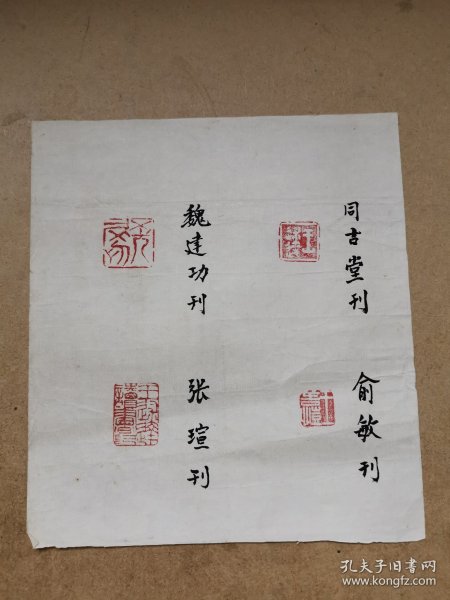 同古堂刊
俞敏刊
魏建功刊
张瑄刊
孔夫子旧书网
www.kongfz.com